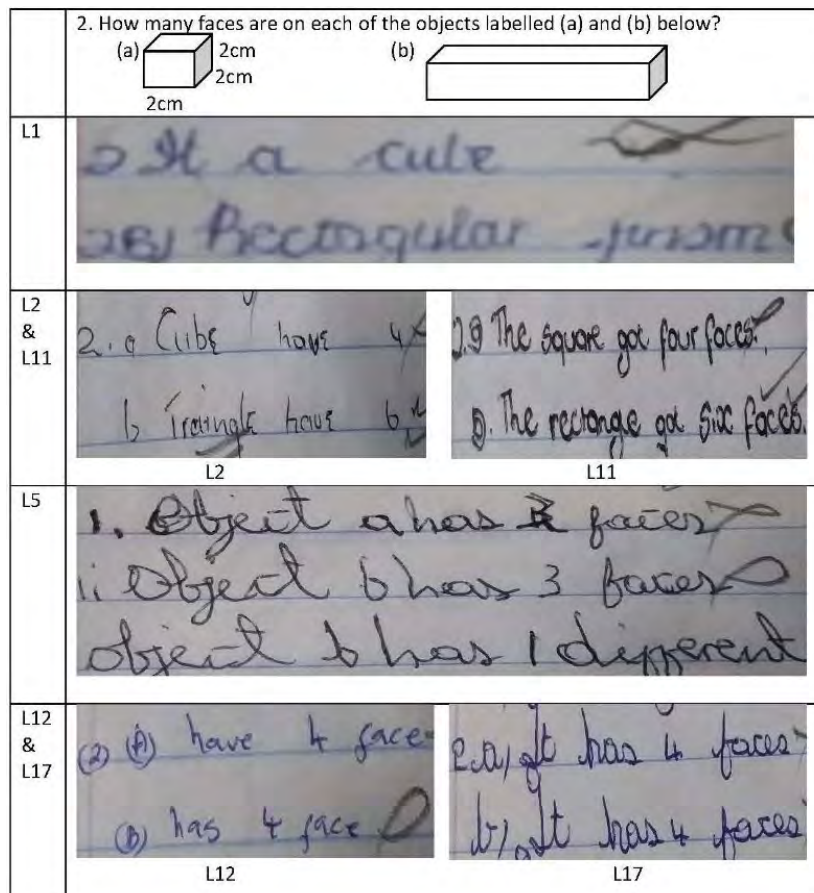 2. How many faces are on each of the objects labelled (a) and (b) below?
(a) 2cm (b)
2cm
2cm
L1
2 It a cube
2B) Rectagular prism
L2
&
L11
2. a Cube have 4
b Traingle have 6
L2
2.a The square got four faces.
b. The rectangle got six faces.
L11
L5
1. Object a has faces
ii Object b has 3 faces
object b has 1 different
L12
&
L17
(2) (A) have 4 face
(B) has 4 face
L12
2.a) It has 4 faces
b) It has 4 faces
L17